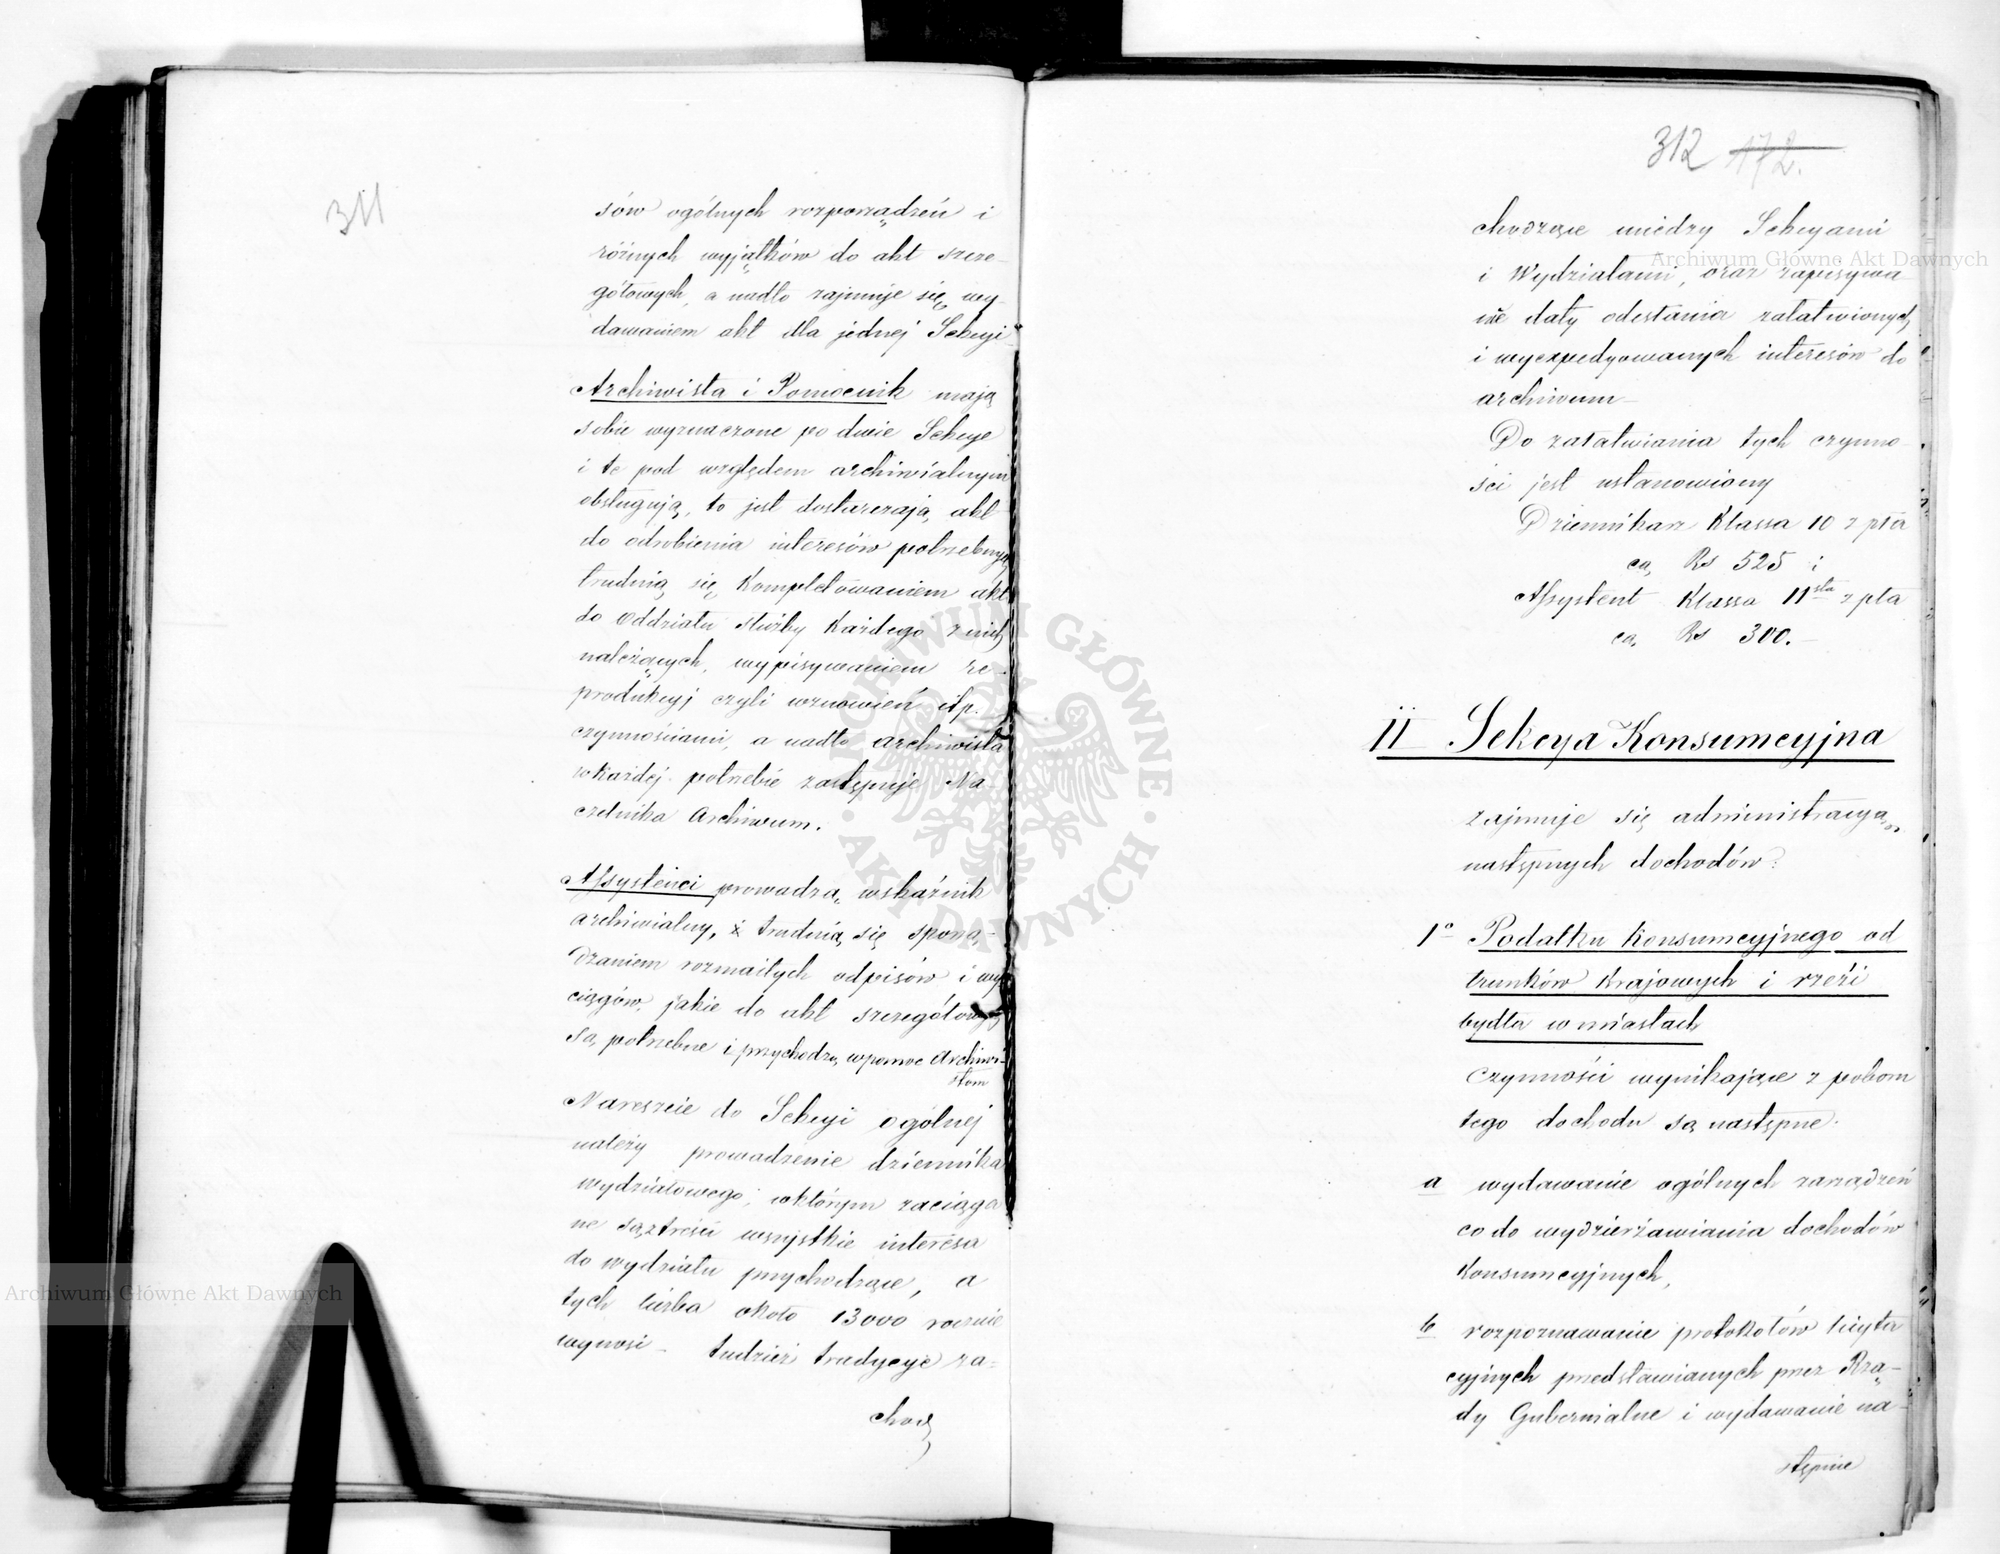 311
sów ogólnych rozporządzeń i
różnych wyjątków do akt szcze-
gółowych, a nadto zajmuje się wy-
dawaniem akt dla jednej Sekcyi
Archiwista i Pomocnik mają
sobie wyznaczone po dwie Sekcye
i te pod względem archiwialnym
obsługują, to jest dostarczają akt
do odrobienia interesów potrzebnych
trudnią się Kompletowaniem akt
do Oddziału służby Każdego z nich
należących, wypisywaniem re-
produkcyj czyli wznowień itp.
czynnościami, a nadto archiwista
w Każdej potrzebie zastępuje Na-
czelnika Archiwum.
Assystenci prowadzą wskaźnik
archiwialny, i trudnią się sporzą-
dzaniem rozmaitych odpisów i wy
ciągów, jakie do akt szczegółowych
są potrzebne i przychodzą w pomoc Archiwi-
stom
Nareszcie do Sekcyi ogólnej
należy prowadzenie dziennika
wydziałowego, w którym zaciąga
ne są z treści wszystkie interesa
do wydziału przychodzące, a
tych liczba około 13000 rocznie
wynosi - tudzież tradycye za-
chodz
312 172.
chodzące między Sekcyami
i Wydziałami, oraz zapisywa
nie daty odesłania załatwionych
i wyexpedyowanych interesów do
archiwum -
Do załatwiania tych czynno-
ści jest ustanowiony
Dziennikarz Klassa 10 z pła
cą Rs 525 i
Assystent Klassa 11sta z pła
cą Rs 300. -
II Sekcya Konsumcyjna
zajmuje się administracyą
następnych dochodów:
1o Podatku Konsumcyjnego od
trunków Krajowych i rzezi
bydła w miastach
Czynności wynikające z poboru
tego dochodu są następne.
a wydawanie ogólnych zarządzeń
co do wydzierżawiania dochodów
Konsumcyjnych,
b rozpoznawanie protokołów licyta
cyjnych przedstawianych przez Rzą-
dy Gubernialne i wydawanie na-
stępnie
Archiwum Główne Akt Dawnych
Archiwum Główne Akt Dawnych
ARCHIWUM GŁÓWNE AKT DAWNYCH